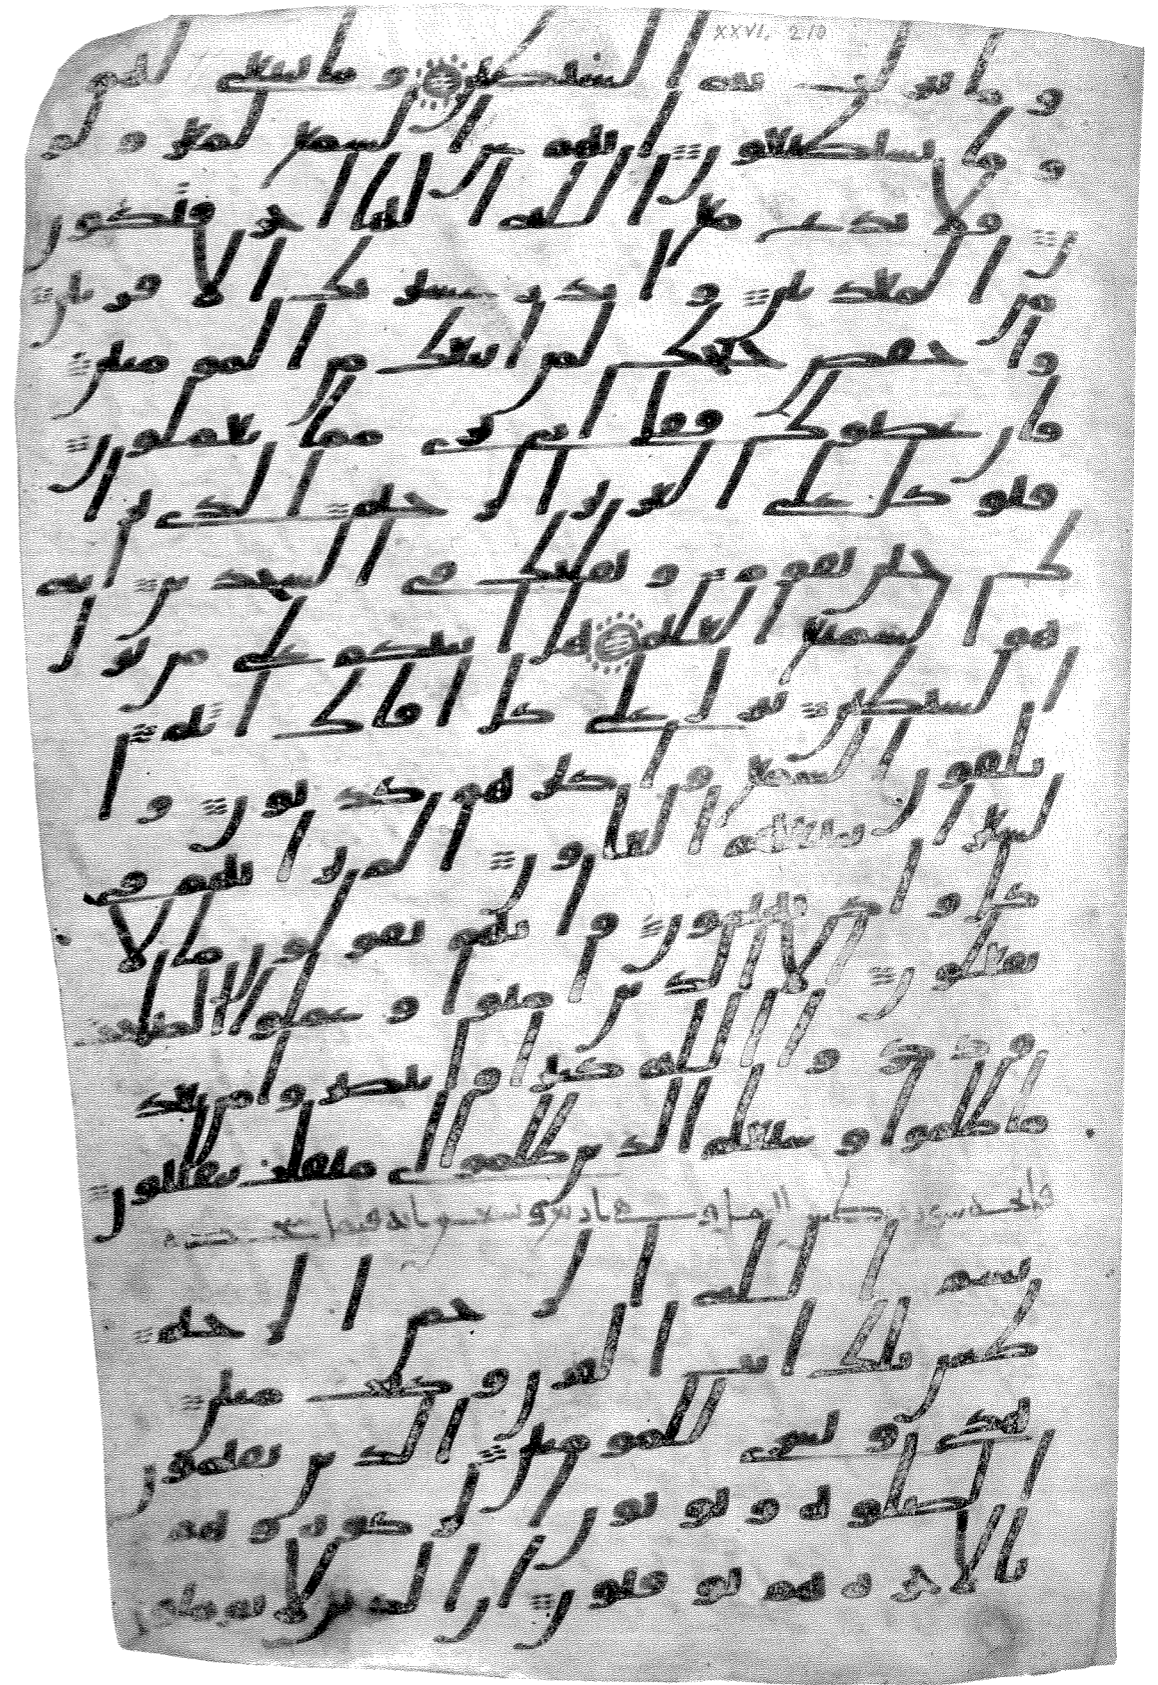 و ما تنزلت به الشيطين و ما ينبغي لهم
و ما يستطيعون انهم عن السمع لمعزولو
ن فلا تدع مع الله الها اخر فتكون
من المعذبين و انذر عشيرتك الاقربين
و اخفض جنحك لمن اتبعك من المومنين
فان عصوك فقل اني بري مما تعملون
فتوكل على العزيز الرحيم الذي ير
ك حين تقوم و تقلبك في السجدين انه
هو السميع العليم هل انبيكم على من تنزل
الشيطين تنزل على كل افاك اثيم
يلقون السمع و اكثرهم كذبون و ا
لشعرا يتبعهم الغاون الم تر انهم في
كل واد يهيمون و انهم يقولون ما لا
يفعلون الا الذين امنوا و عملوا الصلحت
و ذكروا الله كثيرا و انتصروا من بعد
ما ظلموا و سيعلم الذين ظلموا اي منقلب ينقلبون
بسم الله الرحمن الرحيم
طس تلك ايت القرن و كتب مبين
هدى و بشرى للمومنين الذين يقيمون
الصلوة و يوتون الزكوة و هم
بالاخرة هم يوقنون ان الذين لا يومنون